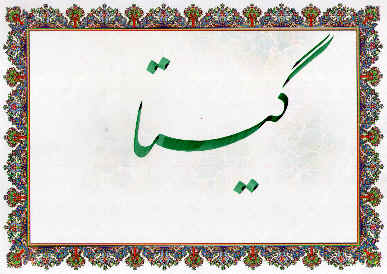 گیتا